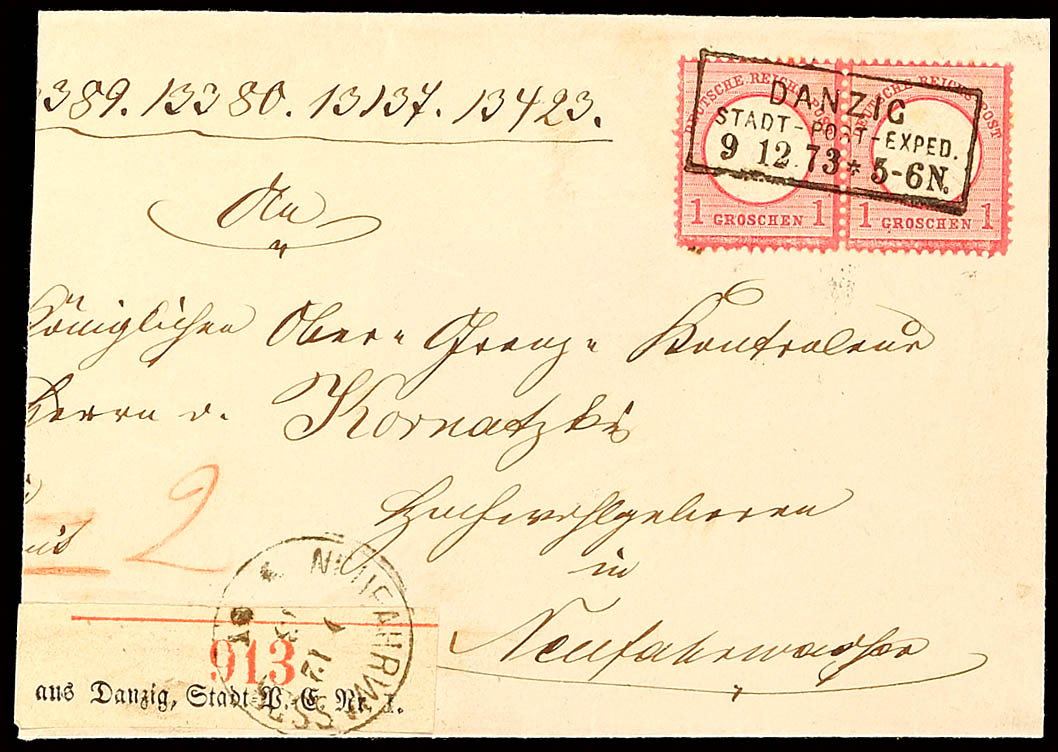 389. 13380. 13137. 13423.
DEUTSCHE REICHS-POST
1 GROSCHEN 1
DEUTSCHE REICHS-POST
1 GROSCHEN 1
DANZIG
STADT-POST-EXPED.
9 12 73 * 5-6N.
An
Königlichen Ober= Grenz= Kontroleur
Herrn v. Kornatzki
Hochwohlgeboren
in
Neufahrwasser
2
NEUFAHRWASSER
12
18
913
aus Danzig, Stadt-P.-E. Nr. I.